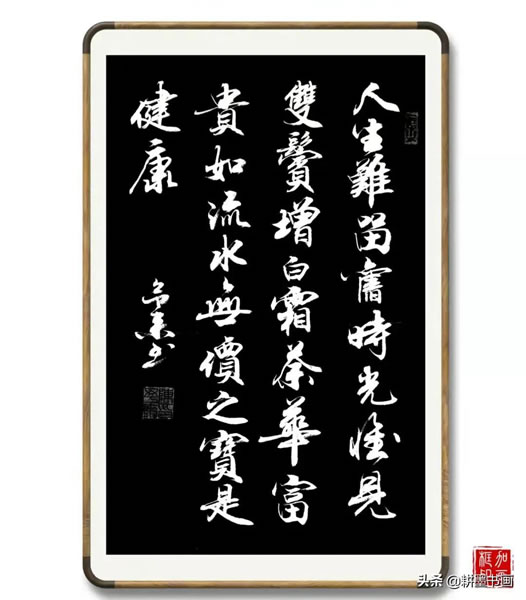 人生難留舊時光惟見
雙鬢增白霜荣華富
貴如流水無價之寶是
健康
头条 @耕墨书画